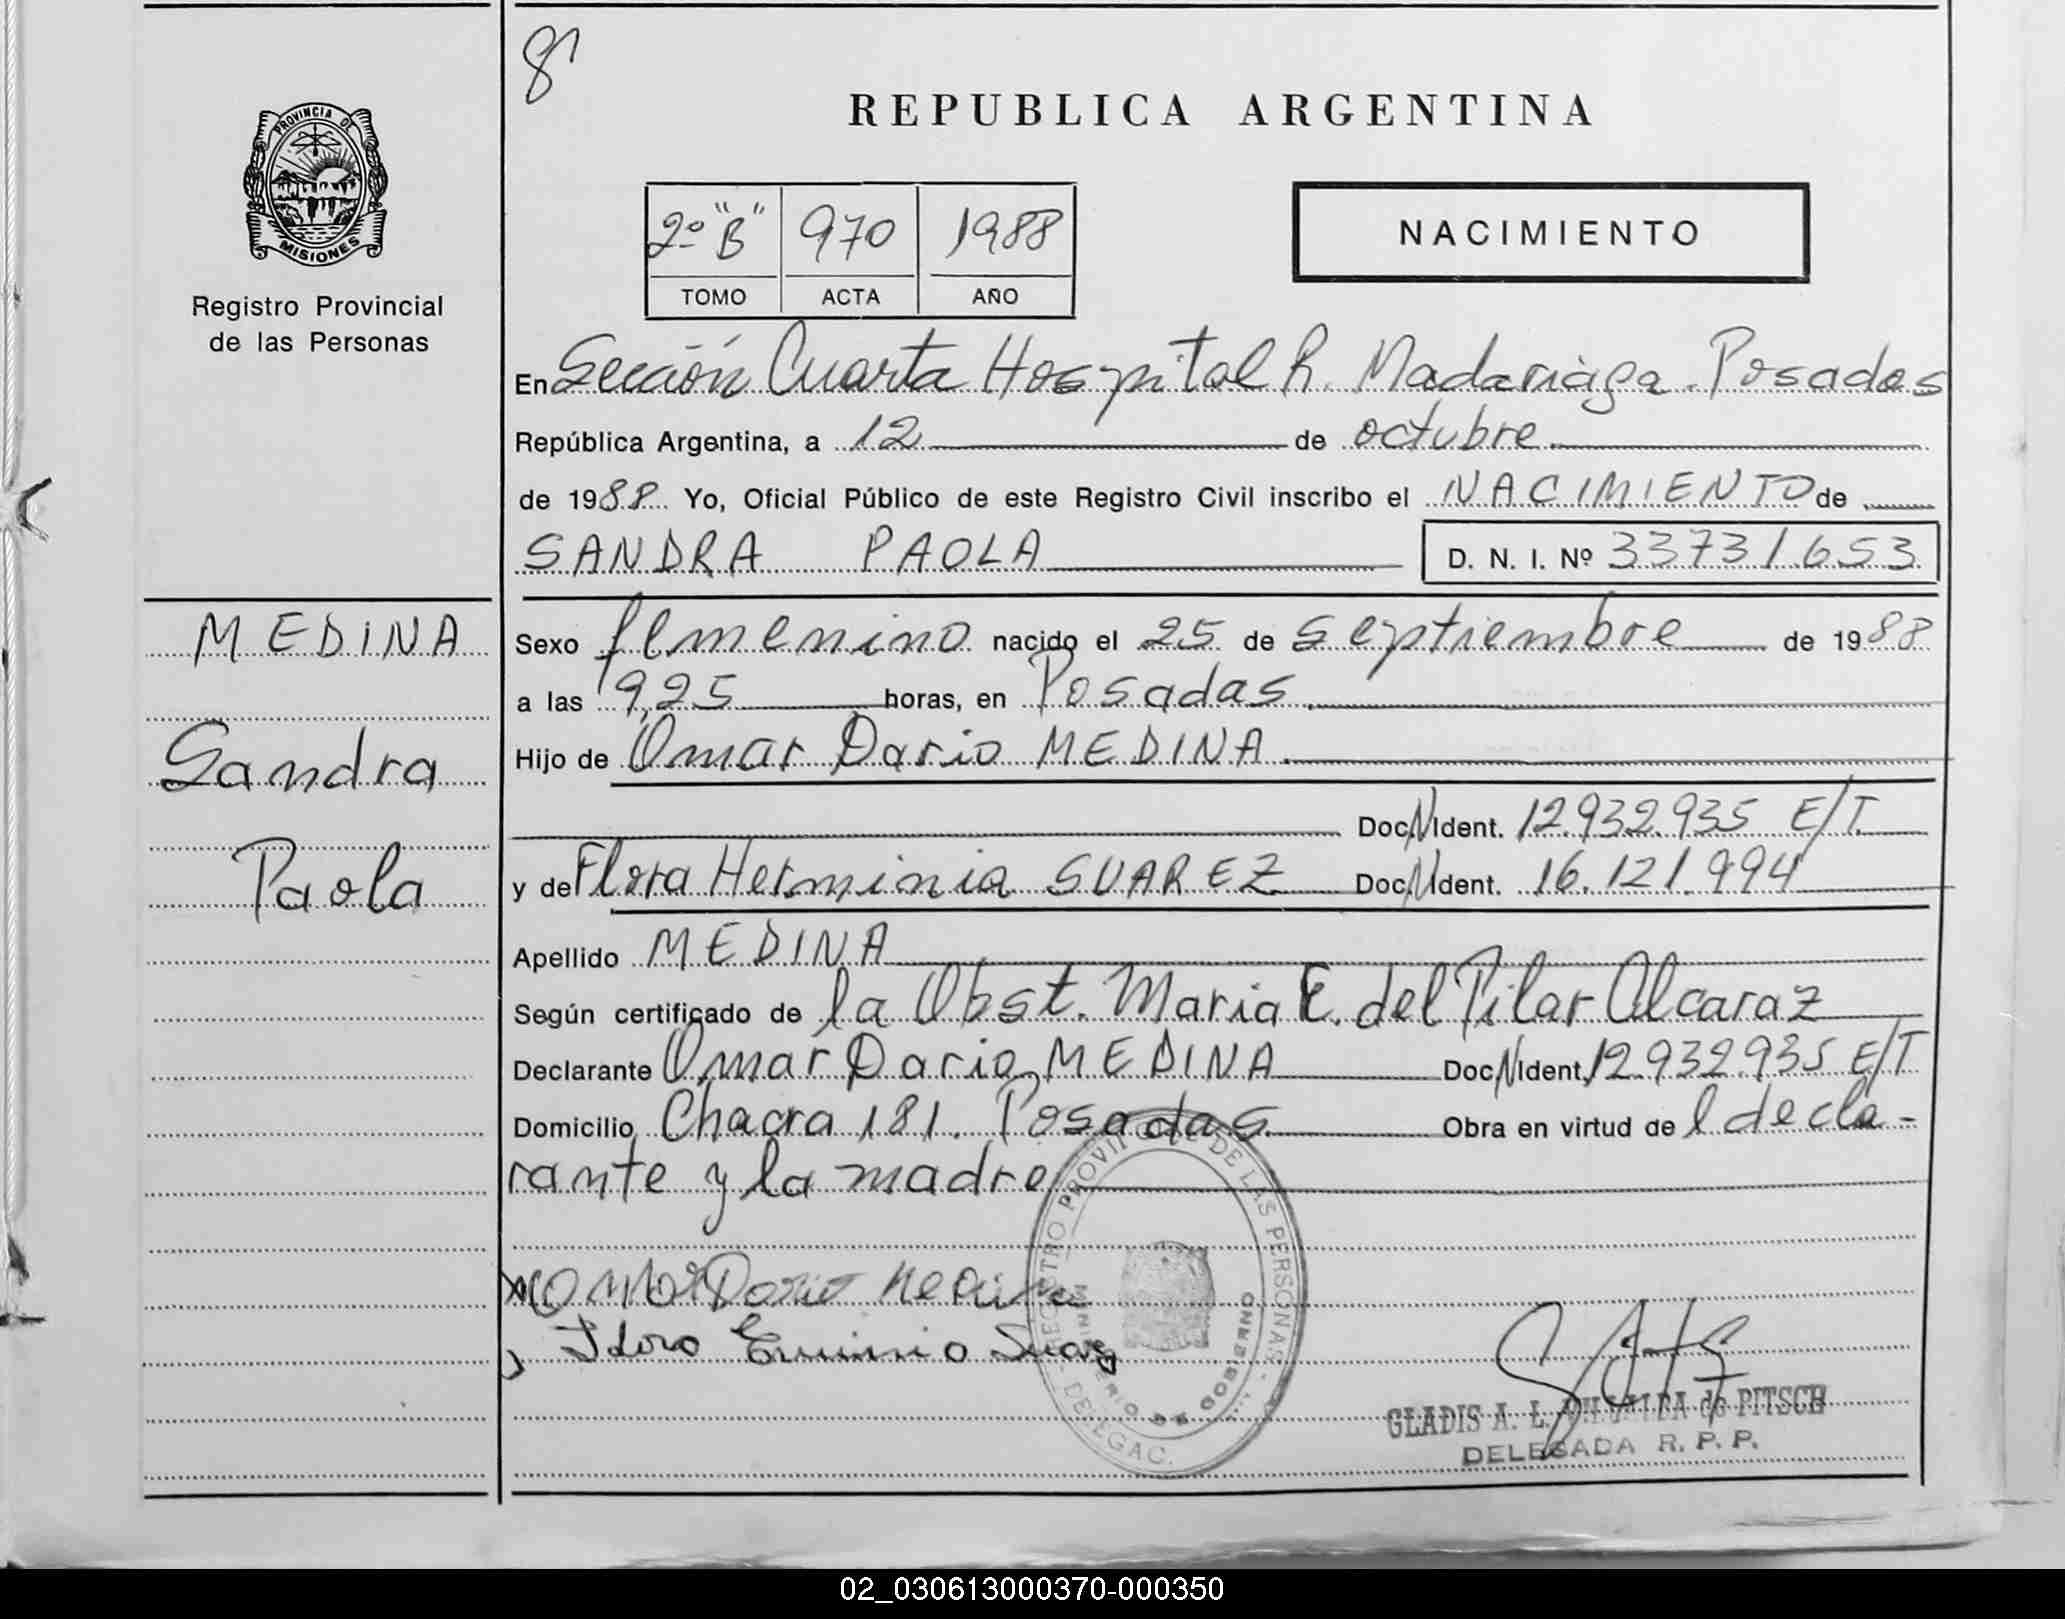 8
REPUBLICA ARGENTINA
PROVINCIA DE
MISIONES
Registro Provincial
de las Personas
2º "B" 970 1988
TOMO ACTA AÑO
NACIMIENTO
En Sección Cuarta Hospital R. Madariaga. Posadas
República Argentina, a 12 de octubre
de 1988 Yo, Oficial Público de este Registro Civil inscribo el NACIMIENTO de
SANDRA PAOLA D. N. I. Nº 33731.653
MEDINA
Sandra
Paola
Sexo femenino nacido el 25 de septiembre de 1988
a las 19,25 horas, en Posadas
Hijo de Omar Dario MEDINA
Doc. N Ident. 12.932.935 E/T.
y de Flora Herminia SUAREZ Doc. N Ident. 16.121.994
Apellido MEDINA
Según certificado de la Obst. Maria E. del Pilar Alcaraz
Declarante Omar Dario MEDINA Doc. N Ident. 12.932.935 E/T
Domicilio Chacra 181. Posadas Obra en virtud de l decla-
rante y la madre
Omar Dario Medina
REGISTRO PROVINCIAL DE LAS PERSONAS
MINISTERIO DE GOBIERNO
DELEGAC.
GLADIS A. L. de PITSCH
DELEGADA R. P. P.
02_030613000370-000350